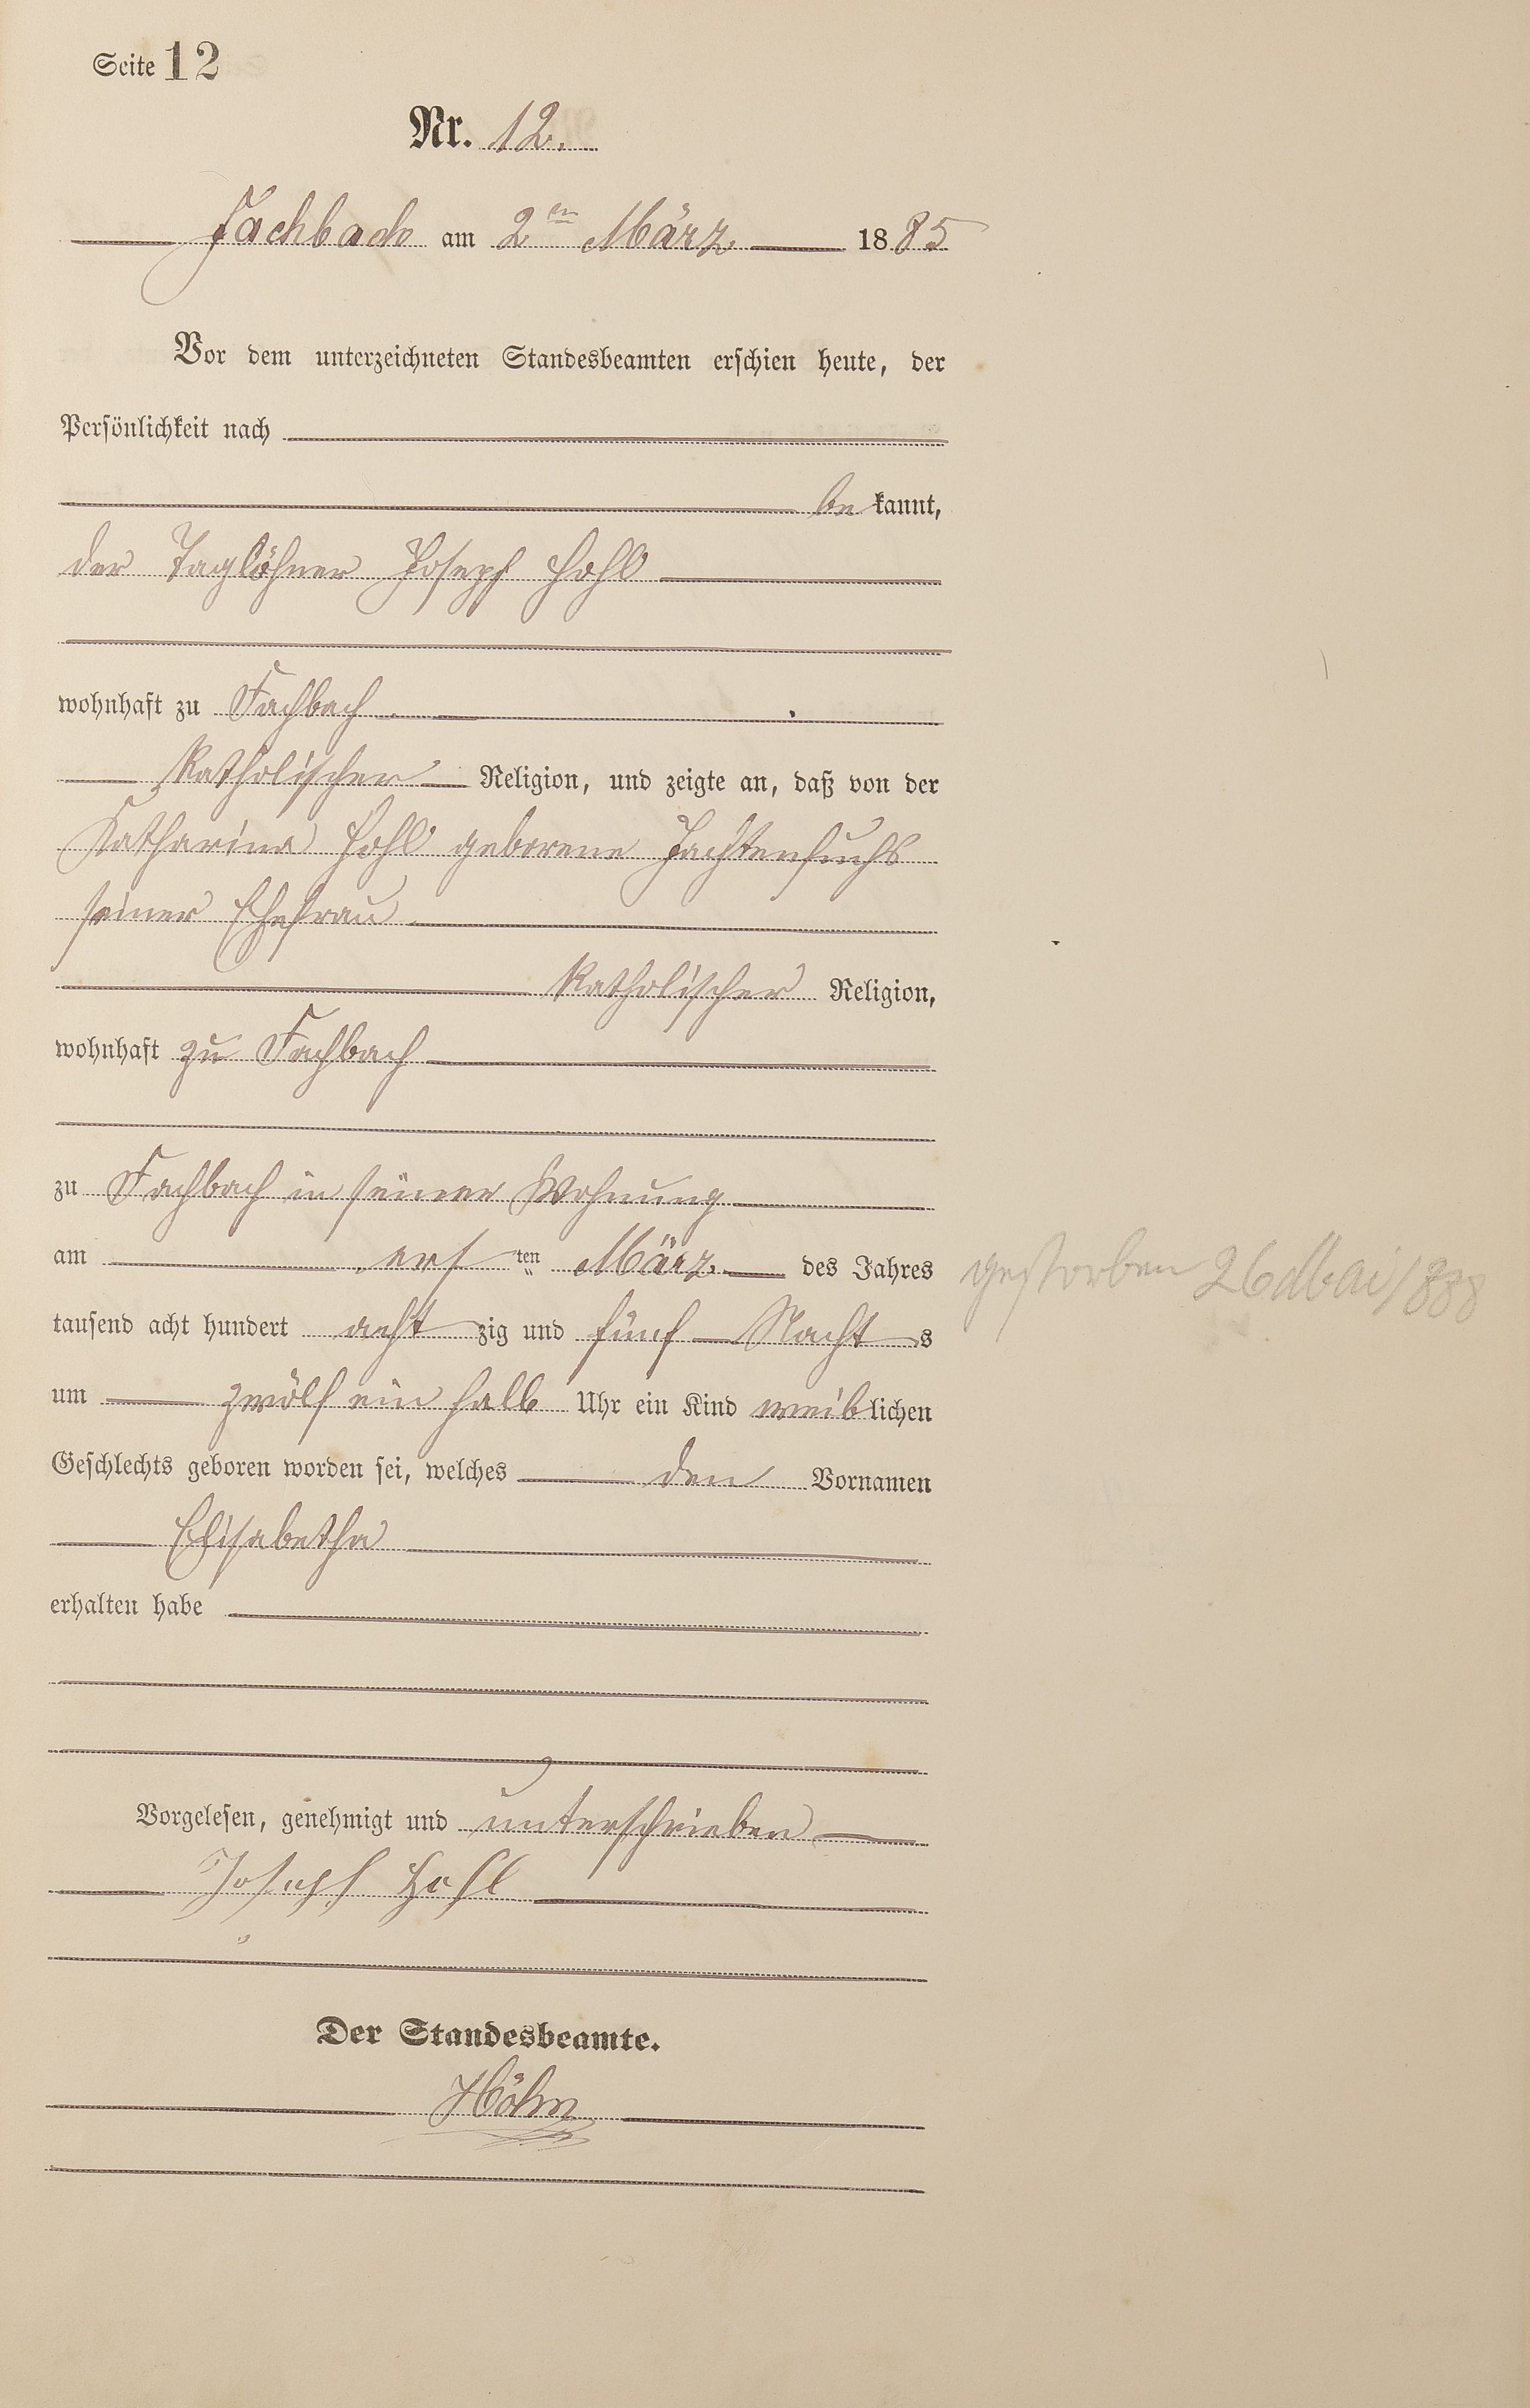 Seite 12
Nr. 12.
Fachbach am 2ten März 1885
Vor dem unterzeichneten Standesbeamten erschien heute, der
Persönlichkeit nach
bekannt,
der Taglöhner Joseph Hohl
wohnhaft zu Fachbach
katholischer Religion, und zeigte an, daß von der
Katharina Hohl geborene Jachtenfuchs
seiner Ehefrau
katholischer Religion,
wohnhaft zu Fachbach
zu Fachbach in seiner Wohnung
am ersten März des Jahres
gestorben 26 Mai 1888
tausend acht hundert achtzig und fünf Nachts
um zwölf ein halb Uhr ein Kind weiblichen
Geschlechts geboren worden sei, welches den Vornamen
Elisabetha
erhalten habe
Vorgelesen, genehmigt und unterschrieben
Joseph Hohl
Der Standesbeamte.